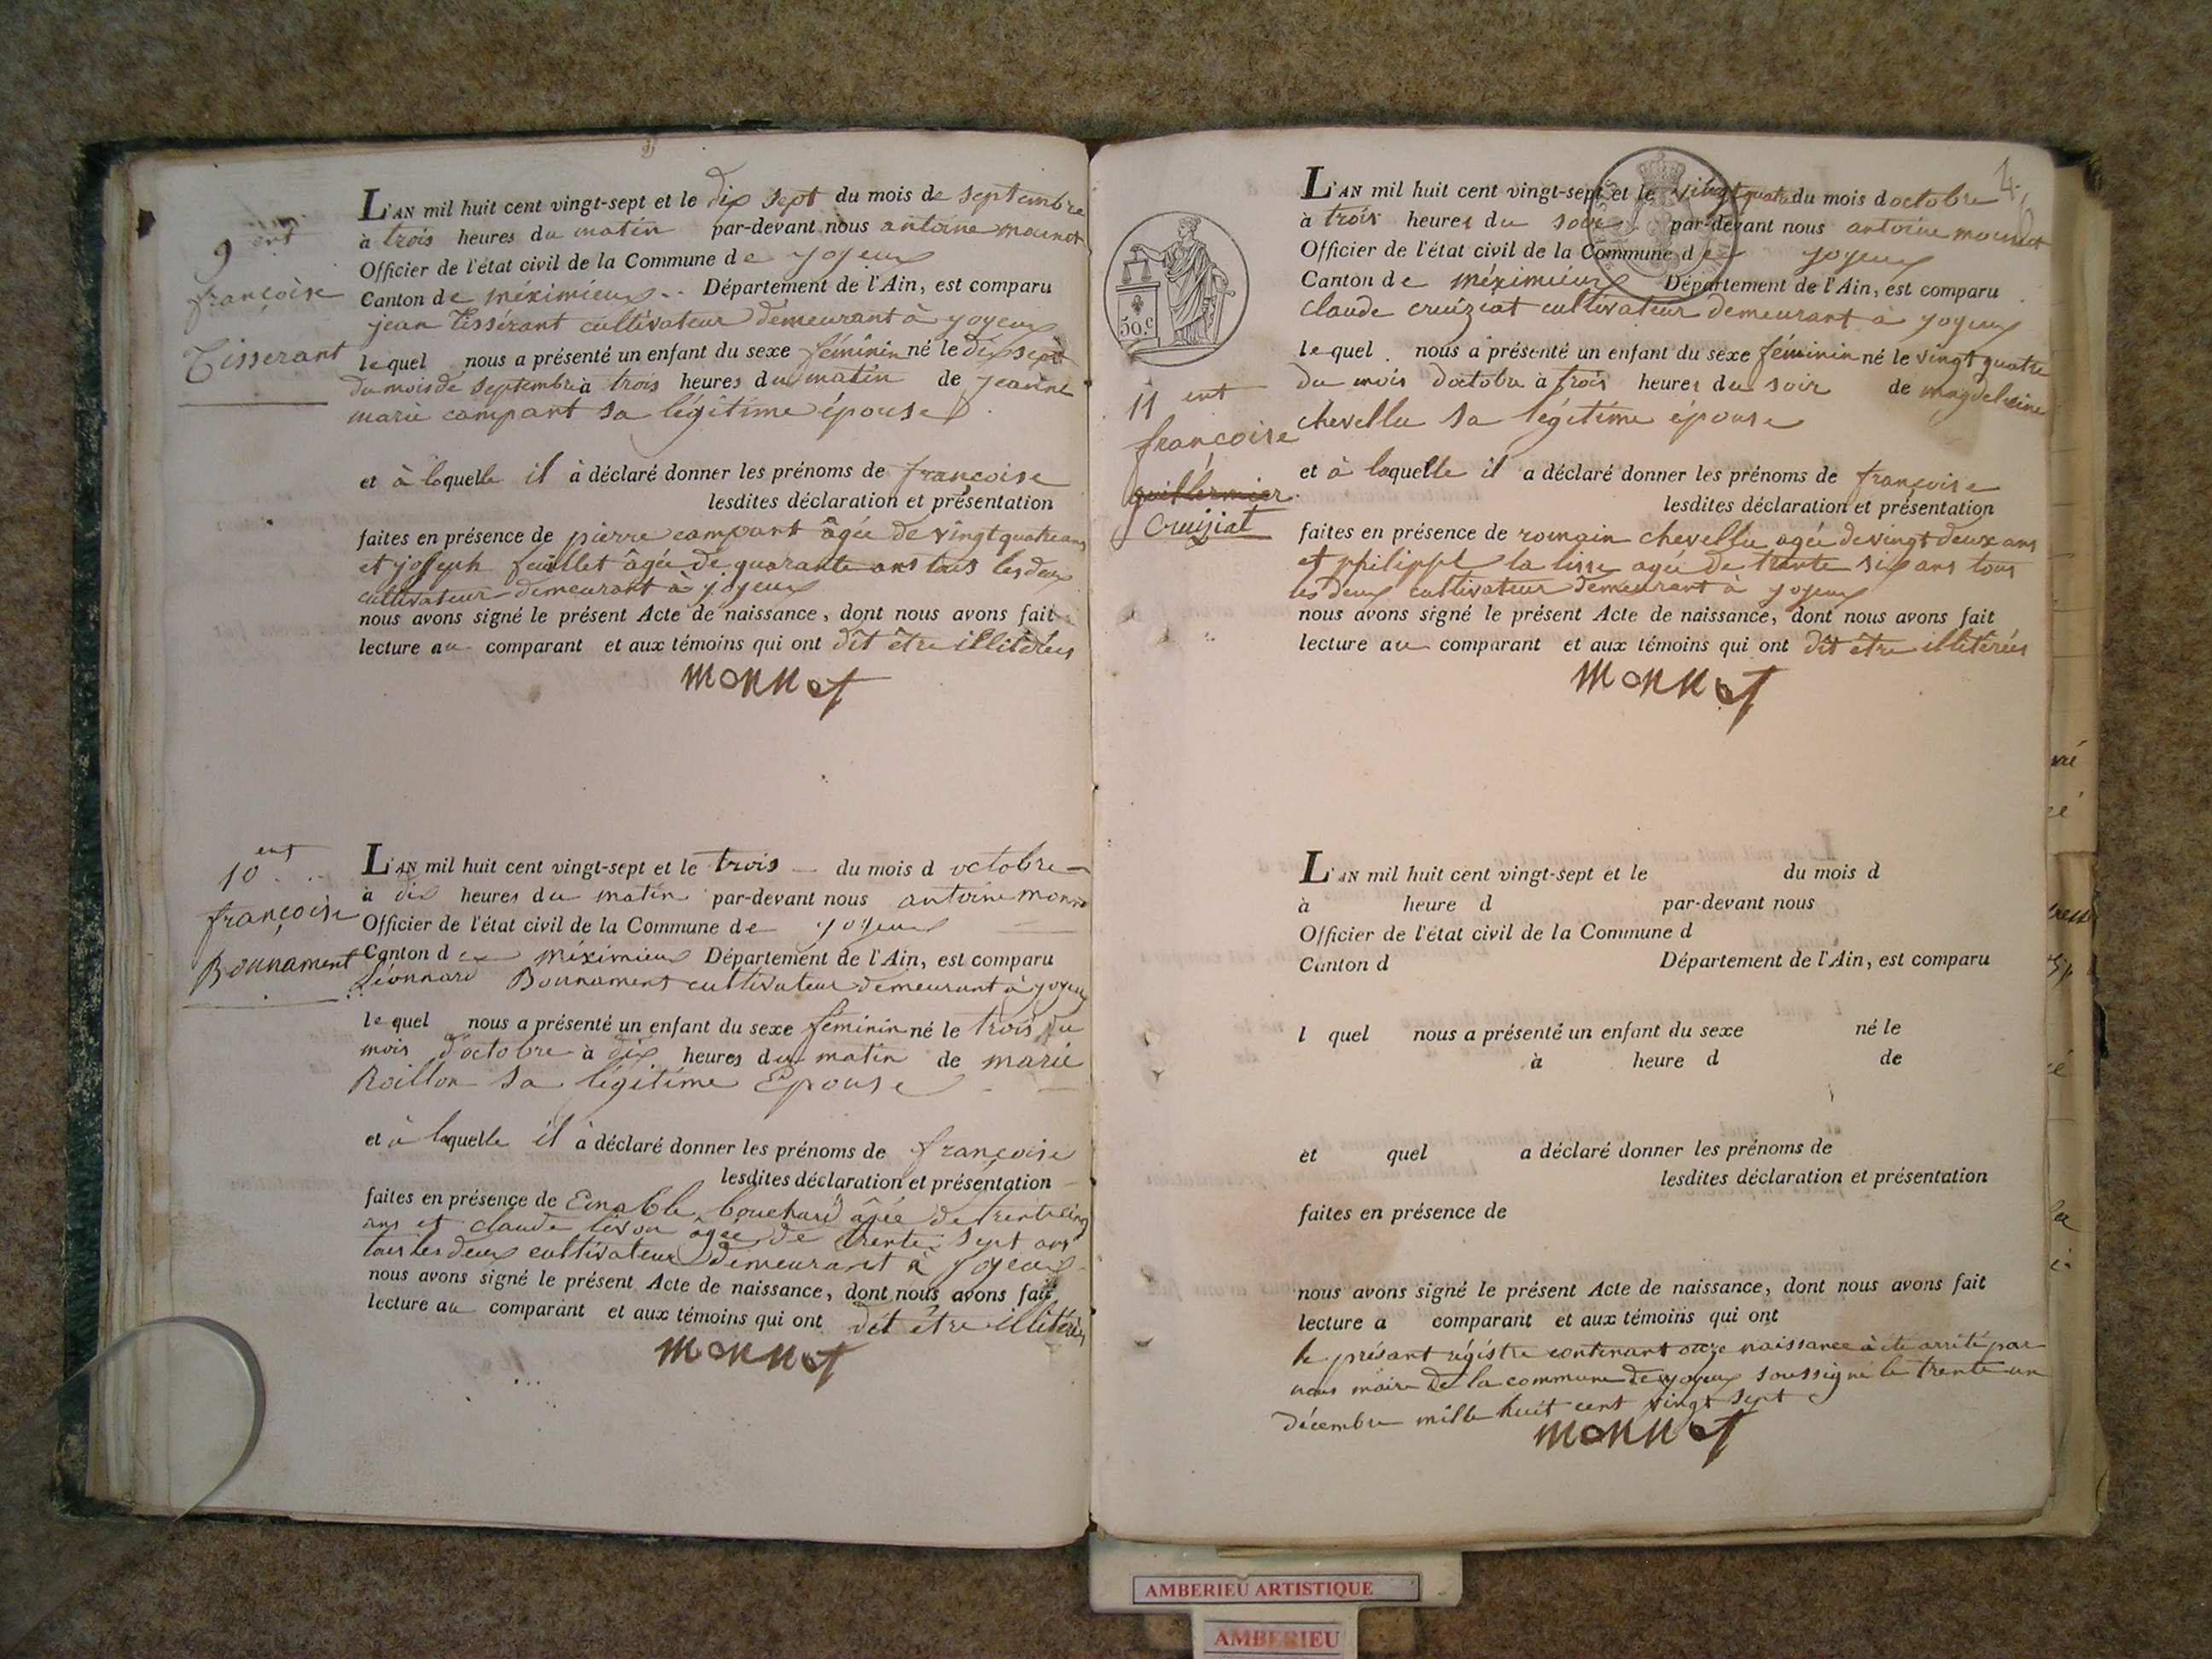 9 ent
françoise
Tisserant
L'AN mil huit cent vingt-sept et le dix sept du mois de septembre
à trois heures du matin par-devant nous antoine monnet
Officier de l'état civil de la Commune de joyeux
Canton de méximieux Département de l'Ain, est comparu
jean Tissérant cultivateur demeurant à joyeux
lequel nous a présenté un enfant du sexe féminin né le dix sept
du mois de septembre à trois heures du matin de jeanne
marie campant sa légitime épouse
et à laquelle il à déclaré donner les prénoms de françoise
lesdites déclaration et présentation
faites en présence de pierre campant âgée de vingt quatre ans
et joseph feuillet âgée de quarante ans tous les deux
cultivateur demeurant à joyeux
nous avons signé le présent Acte de naissance, dont nous avons fait
lecture au comparant et aux témoins qui ont dit être illitérées
monnet
10 ent
françoise
Bonnament
L'AN mil huit cent vingt-sept et le trois du mois d octobre
à dix heures du matin par-devant nous antoine monn
Officier de l'état civil de la Commune de joyeux
Canton de méximieux Département de l'Ain, est comparu
Léonnard Bonnament cultivateur demeurant à joyeux
lequel nous a présenté un enfant du sexe féminin né le trois du
mois d'octobre à dix heures du matin de marie
Roillon sa légitime Epouse
et à laquelle il à déclaré donner les prénoms de françoise
lesdites déclaration et présentation
faites en présence de bouchard âgée de trente cinq
ans et claude âgée de trente sept ans
tous les deux cultivateur demeurant à joyeux
nous avons signé le présent Acte de naissance, dont nous avons fait
lecture au comparant et aux témoins qui ont dit être illitérées
monnet
4
50.c
11 ent
françoise
guillermier
Cruiziat
L'AN mil huit cent vingt-sept et le vingt quatre du mois doctobre
à trois heures du soir par-devant nous antoine monnet
Officier de l'état civil de la Commune de joyeux
Canton de méximieux Département de l'Ain, est comparu
claude cruiziat cultivateur demeurant à joyeux
lequel nous a présenté un enfant du sexe féminin né le vingt quatre
du mois doctobre à trois heures du soir de magdeleine
chevellu sa légitime épouse
et à laquelle il a déclaré donner les prénoms de françoise
lesdites déclaration et présentation
faites en présence de romain chevellu agée de vingt deux ans
et philippe la lisse agée de trente six ans tous
les deux cultivateur demeurant à joyeux
nous avons signé le présent Acte de naissance, dont nous avons fait
lecture au comparant et aux témoins qui ont dit être illitérées
monnet
L'AN mil huit cent vingt-sept et le du mois d
à heure d par-devant nous
Officier de l'état civil de la Commune d
Canton d Département de l'Ain, est comparu
l quel nous a présenté un enfant du sexe né le
à heure d de
et quel a déclaré donner les prénoms de
lesdites déclaration et présentation
faites en présence de
nous avons signé le présent Acte de naissance, dont nous avons fait
lecture a comparant et aux témoins qui ont
le présant régistre contenant onze naissance à été arrité par
nous maire de la commune de joyeux soussigné le trente un
décembre mille huit cent vingt sept
monnet
AMBERIEU ARTISTIQUE
AMBERIEU